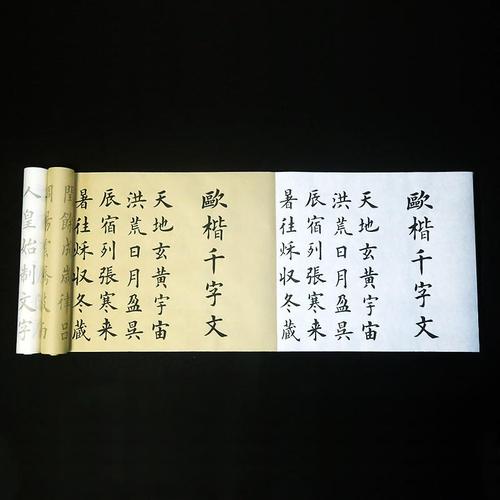 歐楷千字文
天地玄黃宇宙
洪荒日月盈昃
辰宿列張寒来
暑往秋収冬蔵
歐楷千字文
天地玄黃宇宙
洪荒日月盈昃
辰宿列張寒来
暑往秋収冬蔵
閏餘成歲律呂
人皇始制文字